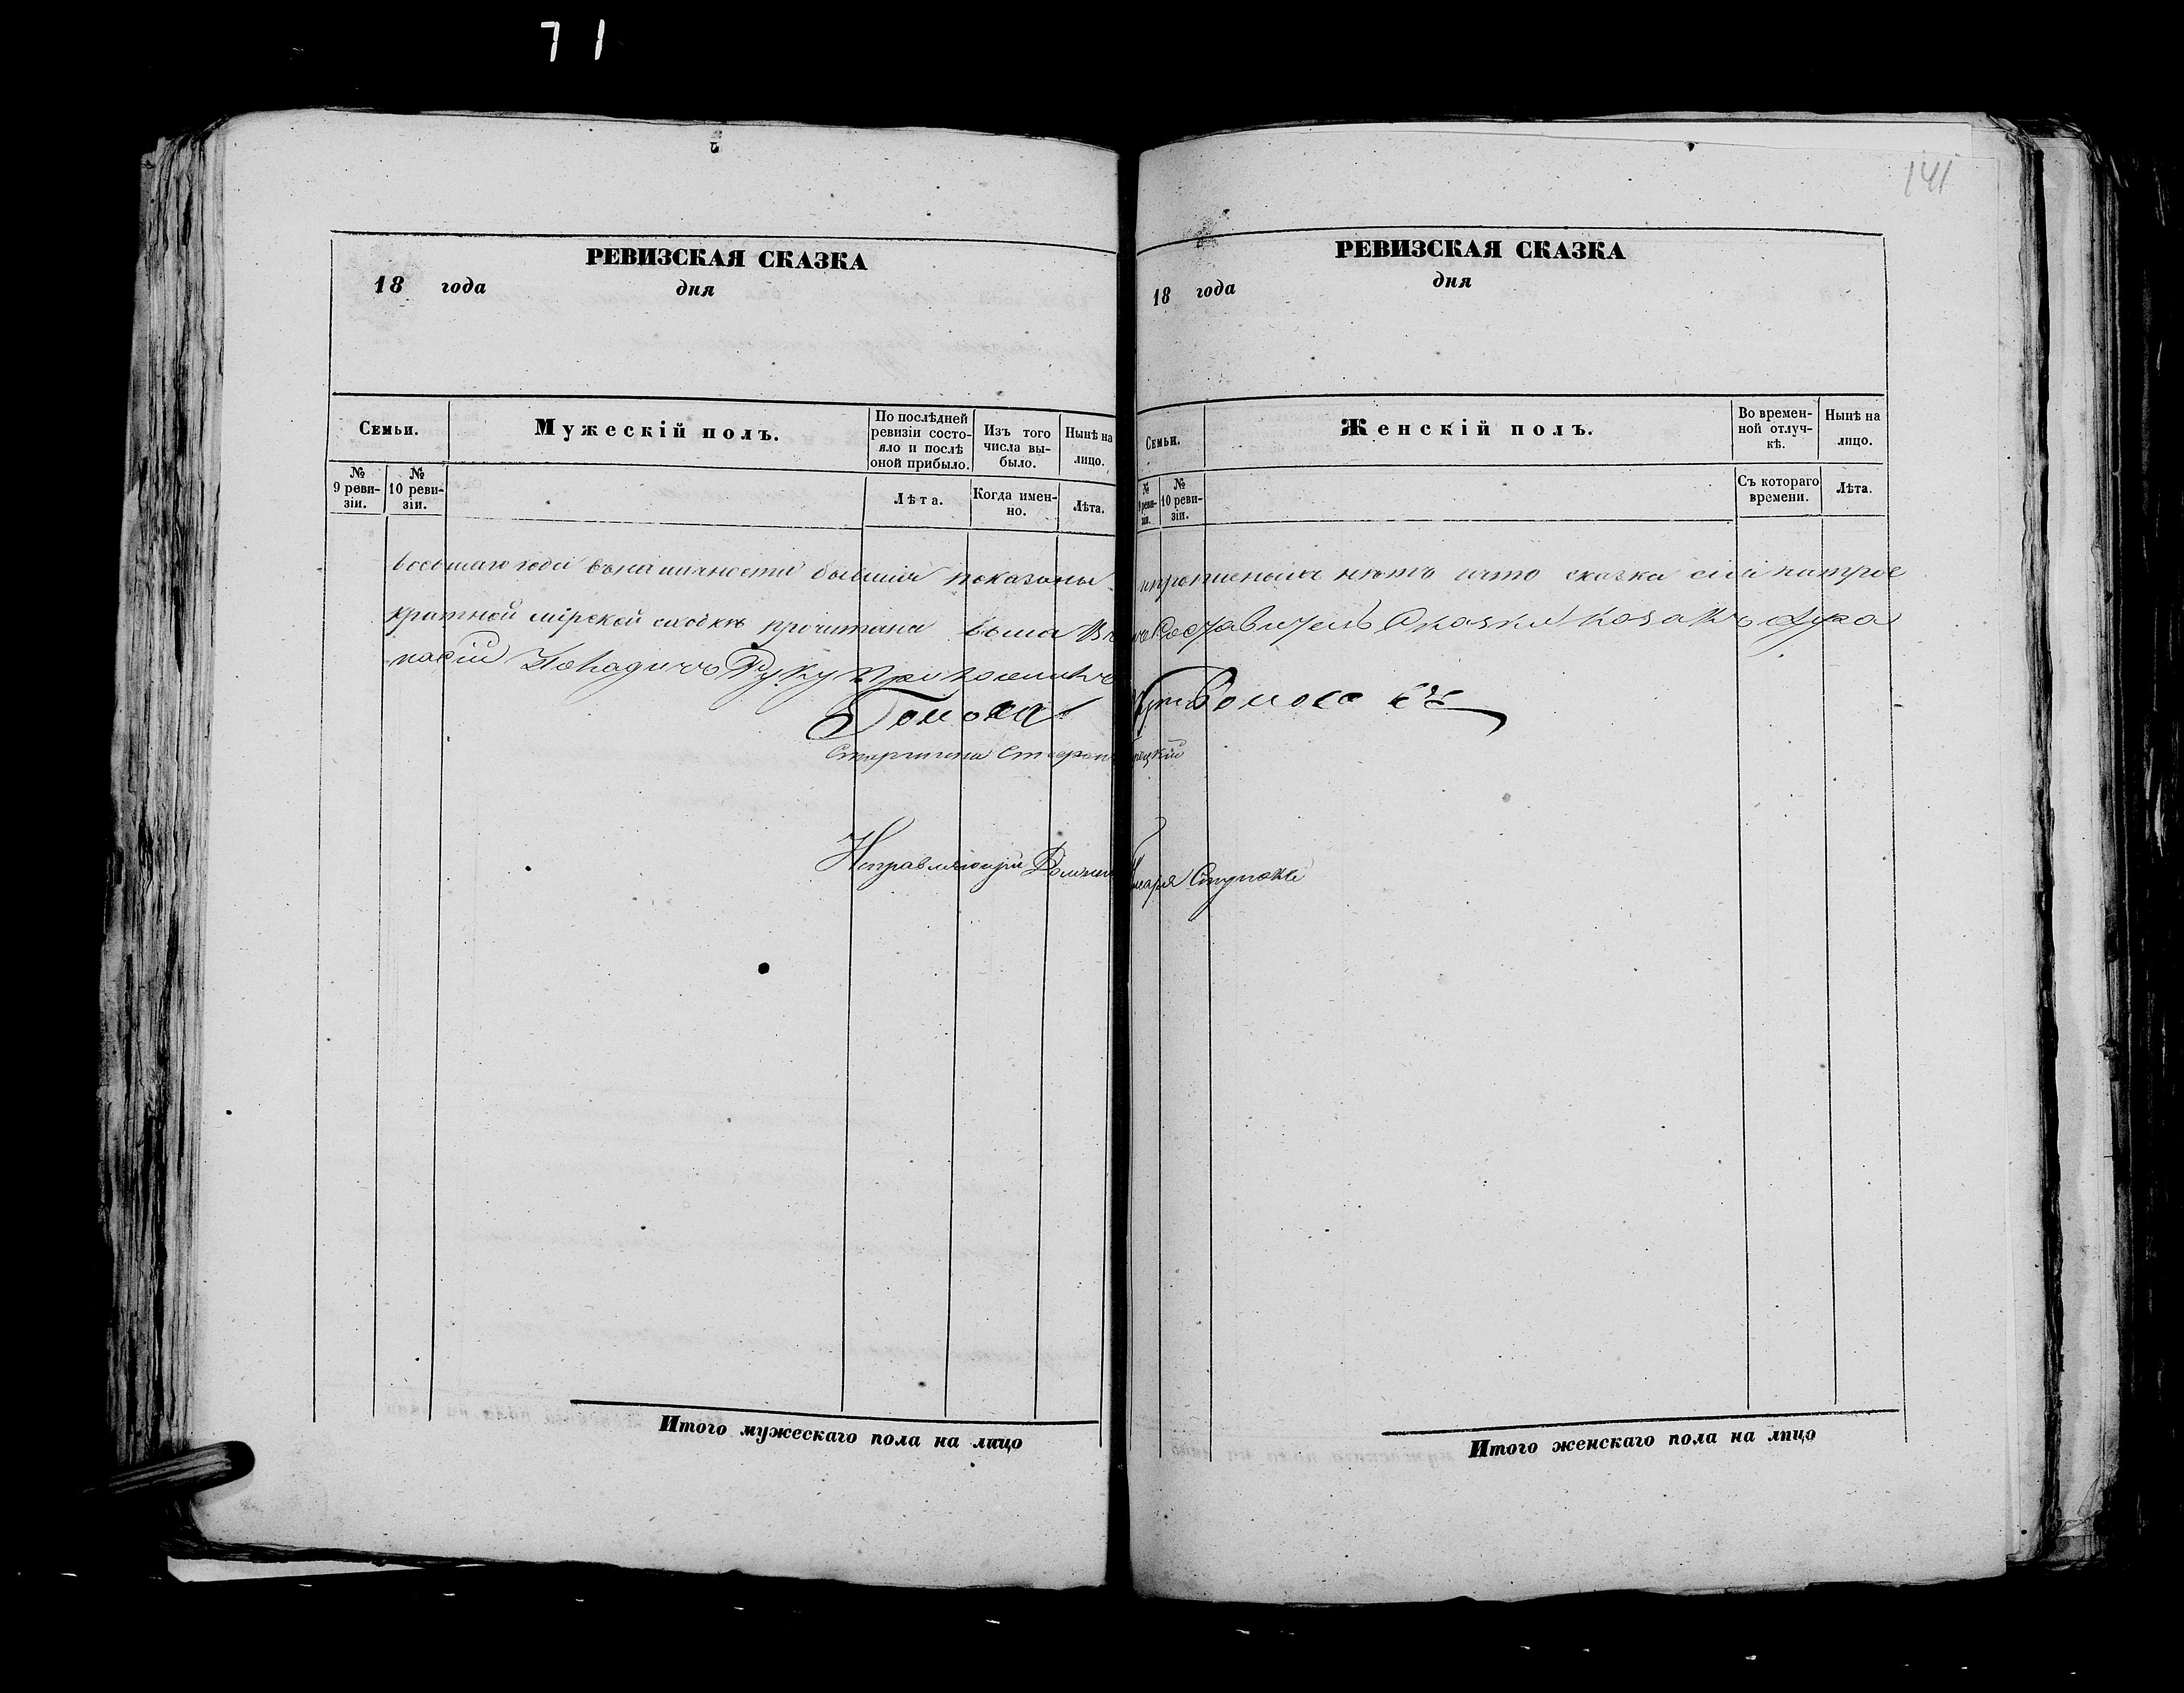 71
141
РЕВИЗСКАЯ СКАЗКА
18 года дня
Семьи.
Мужескій полъ.
По послѣдней ревизіи состо-
яло и послѣ оной прибыло.
Изъ того числа вы-
было.
Нынѣ на лицо.
№ 9 реви-
зіи.
№ 10 реви-
зіи.
Лѣта.
Когда имен-
но.
Лѣта.
РЕВИЗСКАЯ СКАЗКА
18 года дня
Семьи.
Женскій полъ.
Во времен-
ной отлуч-
кѣ.
Нынѣ на лицо.
№ 9 реви-
зіи.
№ 10 реви-
зіи.
Съ котораго времени.
Лѣта.
года въ наличности бывшія показаны нѣтъ что сказка сія на трое
кратной мірской сходкѣ прочитана была Составитель Сказки козакъ
Руку приложилъ
Голова
Старшина
Исправляющій Писаря Ступка
Итого мужескаго пола на лицо
Итого женскаго пола на лицо